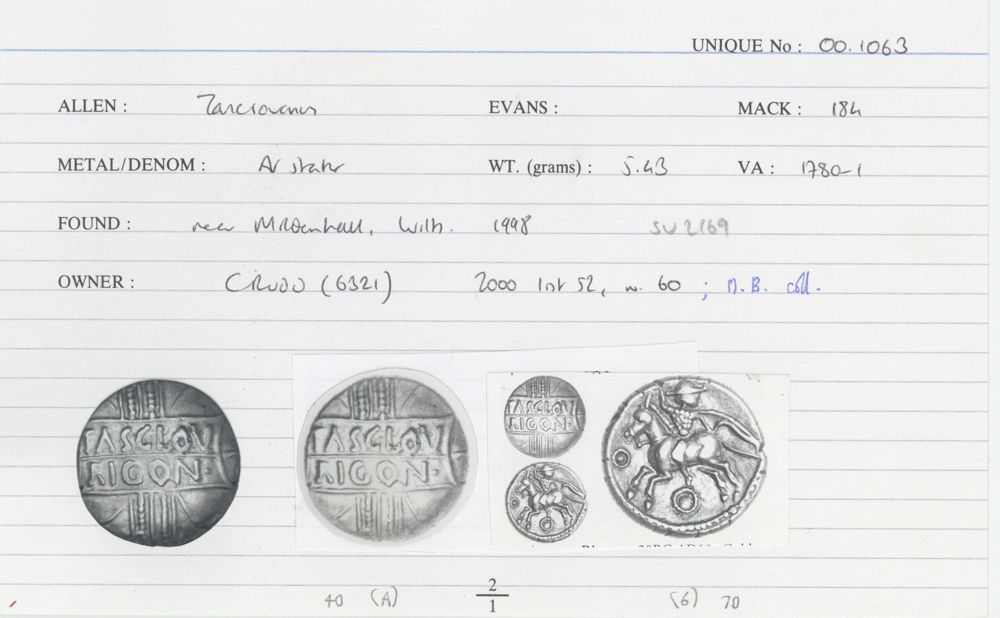 UNIQUE No : 00.1063
ALLEN : Tasciovanus EVANS : MACK : 184
METAL/DENOM : AV stater WT. (grams) : 5.43 VA : 1780-1
FOUND : near Mildenhall, Wilts. 1998 SU 2169
OWNER : CRUDD (6321) 2000 list 52, no. 60 ; M.B. coll.
TASCIOV
RICON
TASCIOV
RICON
TASCIOV
RICON
40 (A) 2/1 (6) 70